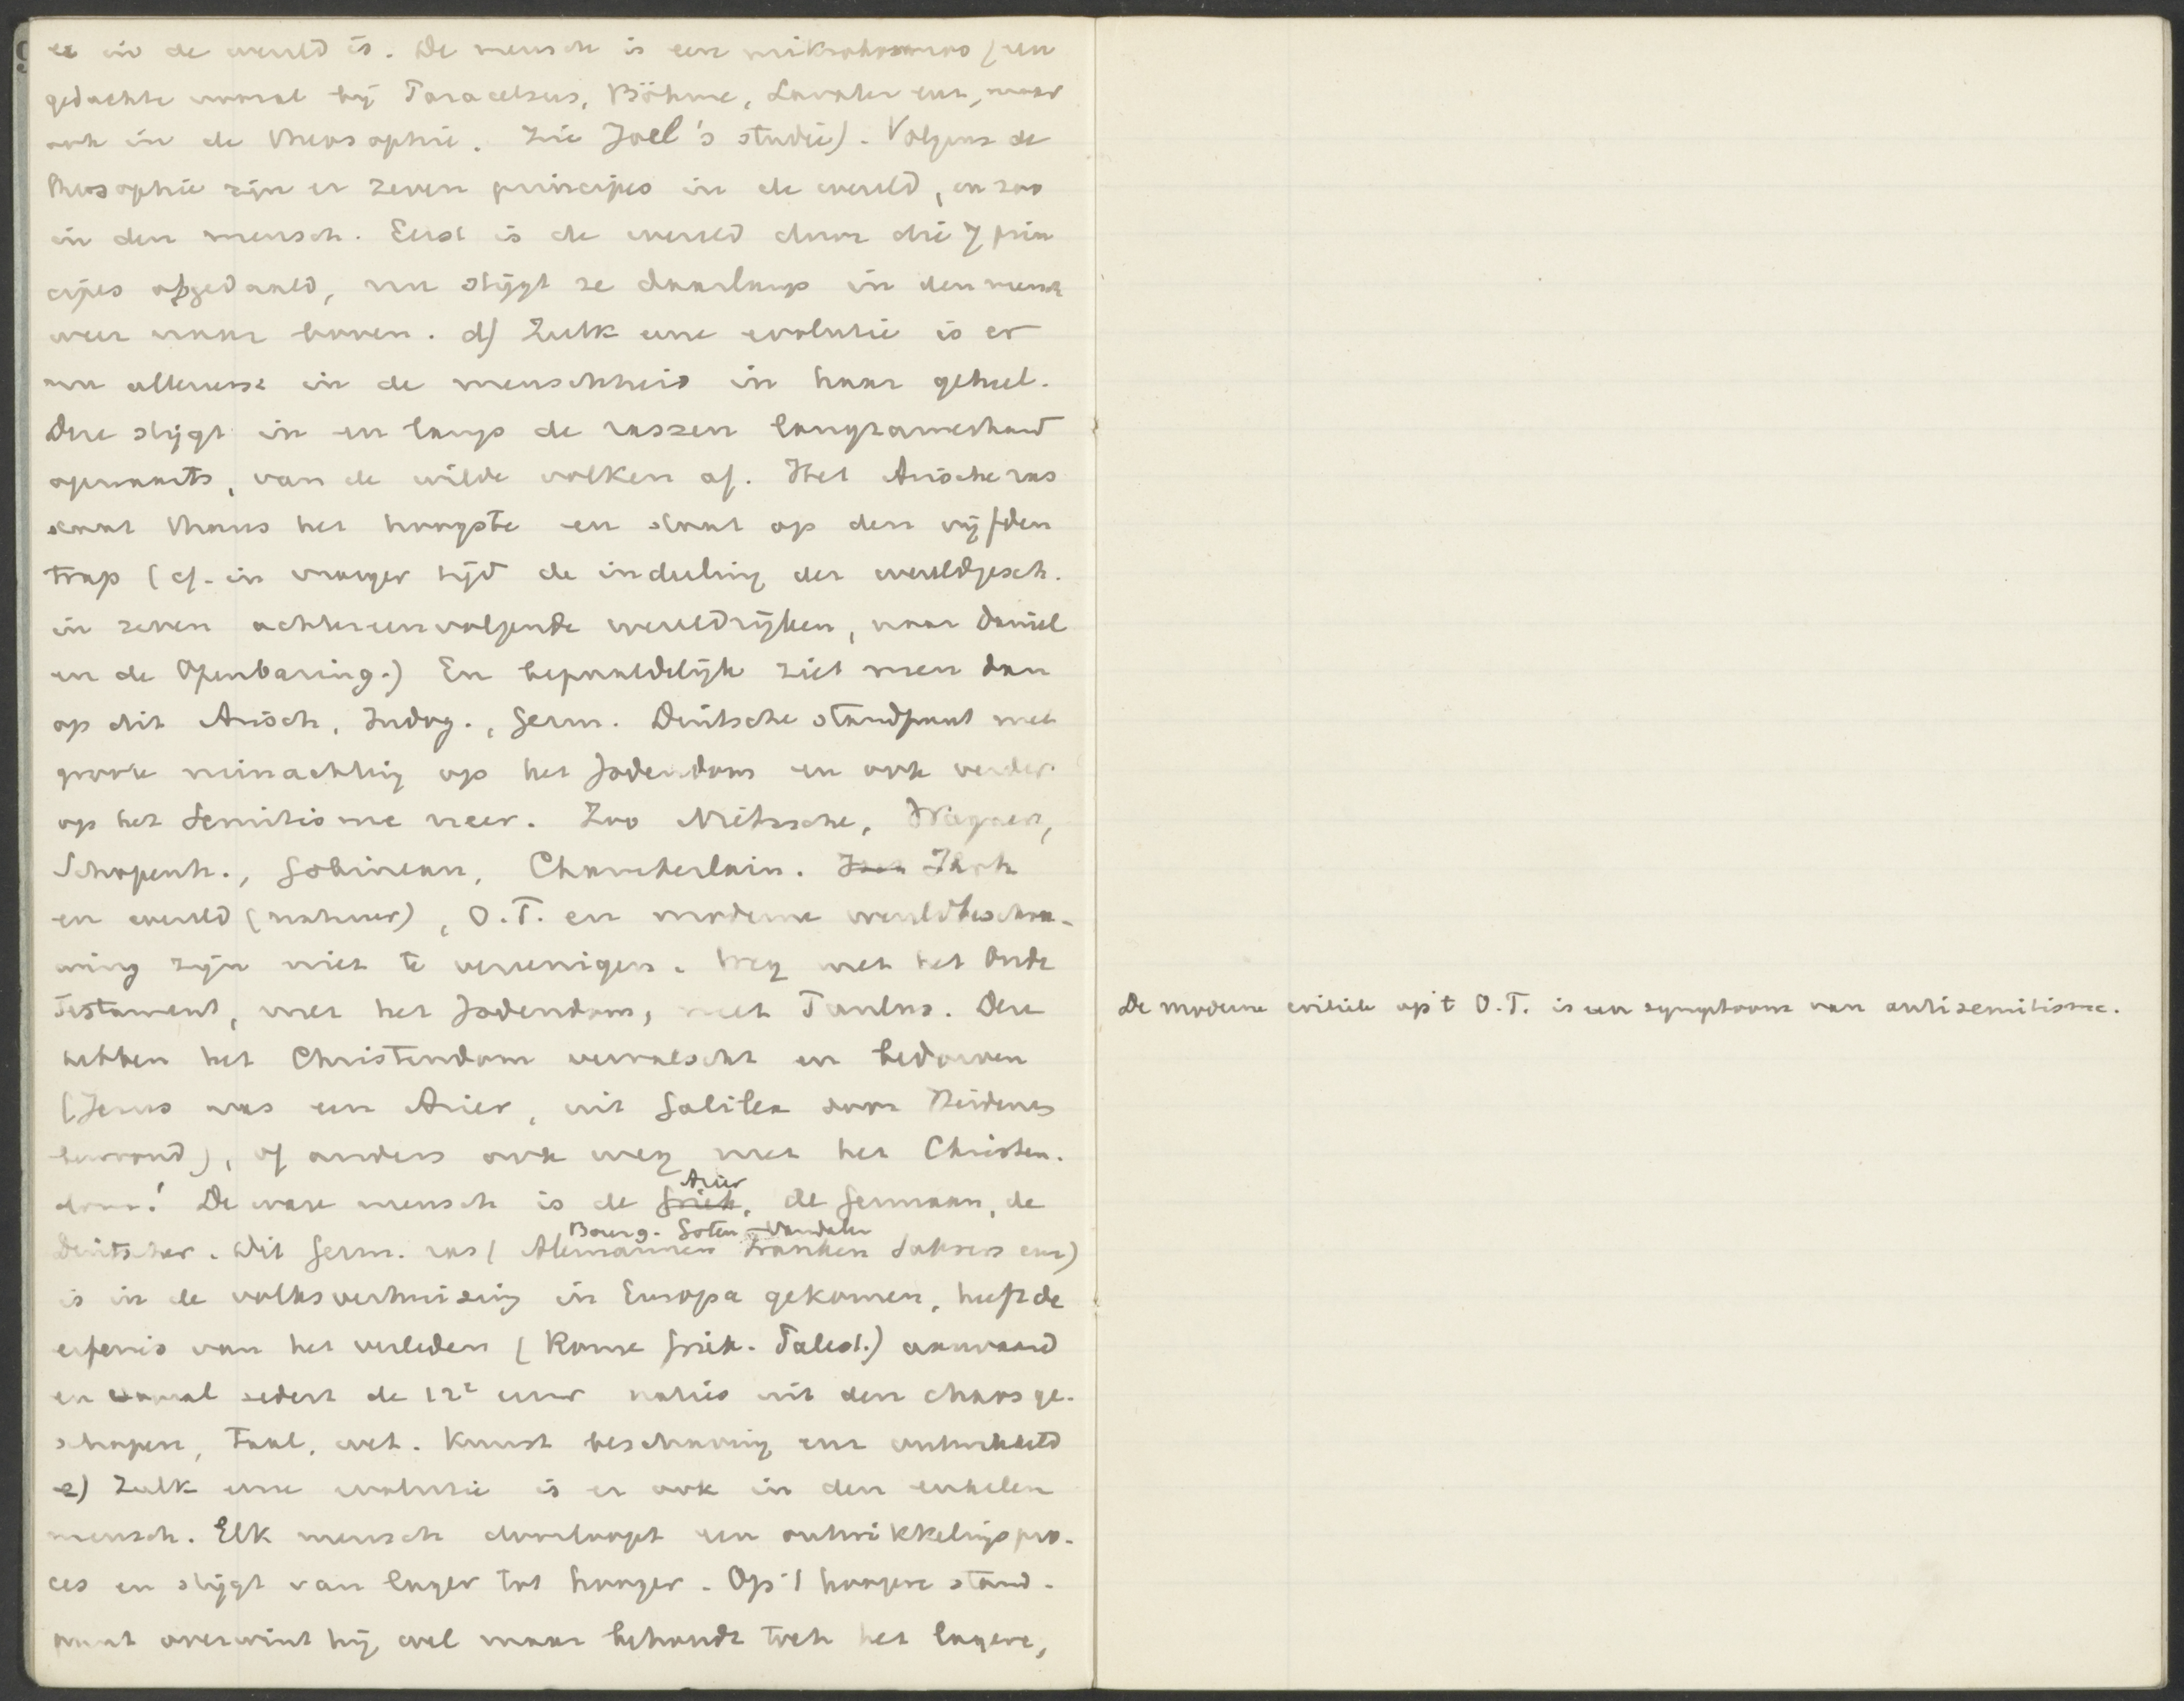 er in de wereld is. De mensch is een mikrokosmos (een
gedachte vooral bij Paracelsus, Böhme, Lavater enz, maar
ook in de theosophie. Zie Joel's studie). Volgens de
theosophie zijn er zeven principes in de wereld, en zoo
in den mensch. Eerst is de wereld door die 7 prin
cipes afgedaald, nu stijgt ze daarlangs in den mensch
weer naar boven. d) Zulk eene evolutie is er
nu allereerst in de menschheid in haar geheel.
Deze stijgt in en langs de rassen langzamerhand
opwaarts, van de wilde volken af. Het Arische ras
staat thans het hoogste en staat op den vijfden
trap (cf. in vroeger tijd de indeeling der wereldgesch.
in zeven achtereenvolgende wereldrijken, naar Daniel
en de Openbaring.) En bepaaldelijk ziet men dan
op dit Arisch, Indog., Germ. Deutsche standpunt met
groote minachting op het Jodendom en ook verder
op het Semitisme neer. Zoo Nietzsche, Wagner,
Schopenh., Gobineau, Chamberlain. Jhvh
en wereld (natuur), O.T. en moderne wereldbeschou-
wing zijn niet te vereenigen. Weg met het Oude
Testament, met het Jodendom, met Paulus. Deze
hebben het Christendom vervalscht en bedorven
(Jezus was een Arier, uit Galilea door Heidenen
bewoond), of anders ook weg met het Christen-
dom! De ware mensch is de Griek, Arier de Germaan, de
Deutscher. Dit Germ. ras (Alemannen Bourg. Goten Vandalen Franken Saksers enz)
is in de volksverhuizing in Europa gekomen, heeft de
erfenis van het verleden (Rome Griek. Palest.) aanvaard
en vooral sedert de 12e eeuw naties uit den chaos ge-
schapen, Taal, wet. Kunst beschaving enz ontwikkeld
e) Zulk eene evolutie is er ook in den enkelen
mensch. Elk mensch doorloopt een ontwikkelingspro-
ces en stijgt van lager tot hooger. Op 't hoogere stand-
punt overwint hij wel maar behoudt toch het lagere,
De moderne critiek op 't O.T. is een symptoom van antisemitisme.